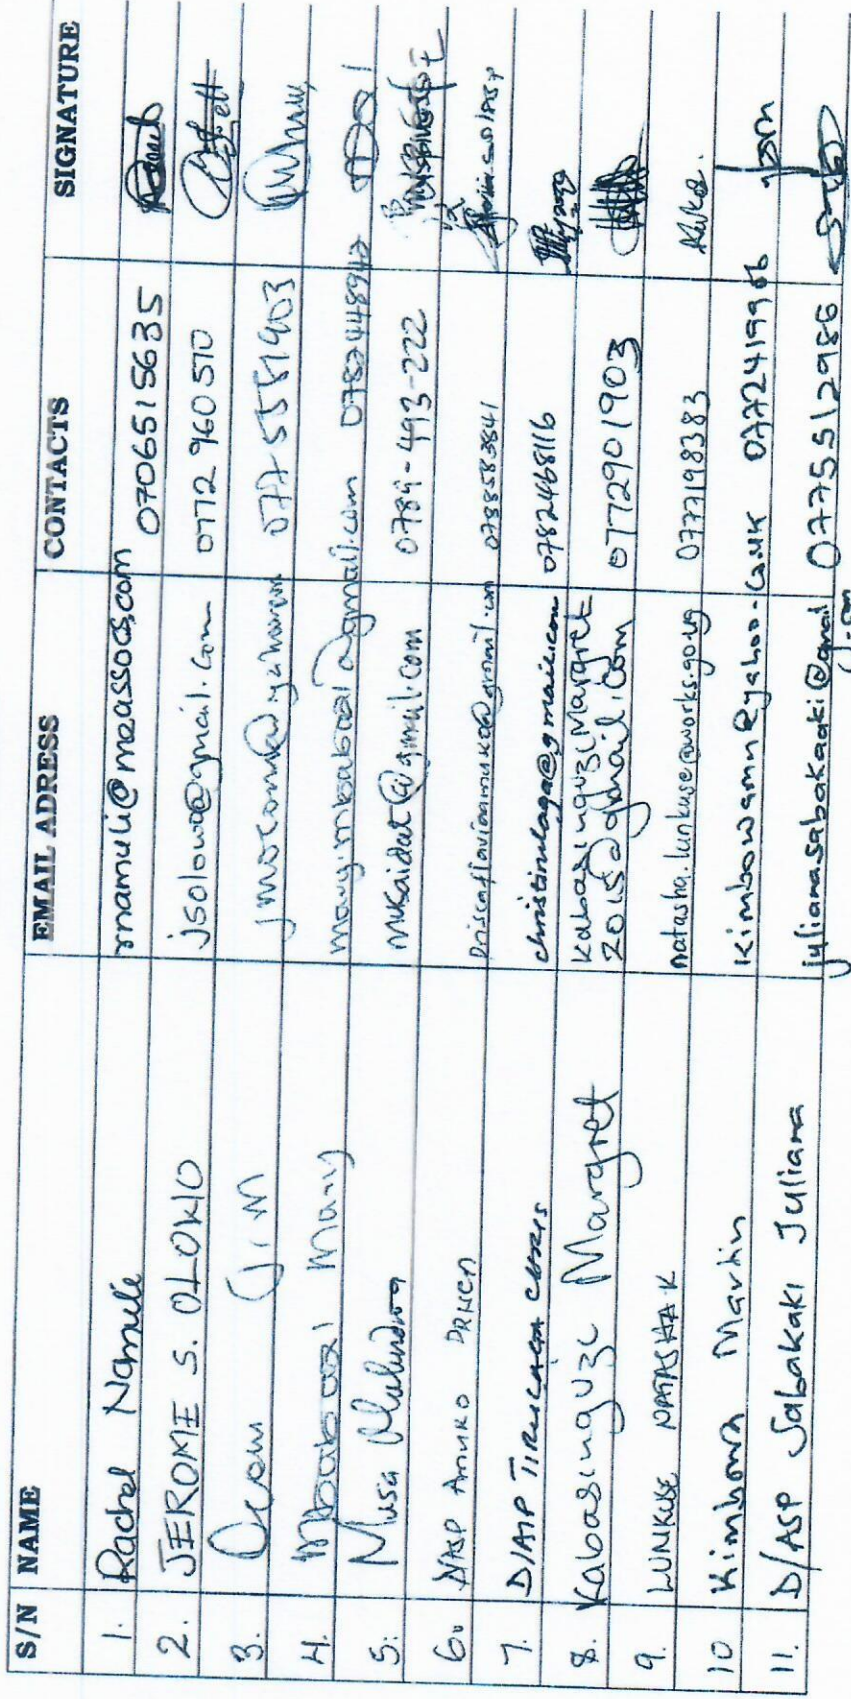 S/N NAME EMAIL ADRESS CONTACTS SIGNATURE
1. Rachel Namuli rnamuli@meassocs.com 0706515635
2. JEROME S. OLOKIO jsolowo@gmail.com 0772 960510
3. Ocom Jim 077-5581903
4. Mbabazi Mary mary.mbabazi@gmail.com 0782448942
5. Musa mksaidat@gmail.com 0789-493-222
6. D/ASP Amuko priscaflaviaamuko@gmail.com 0788583841
7. D/AIP christinelaga@gmail.com 0782468116
8. Kabasinguzi Margret KabasinguziMargret 0772901903
2015@gmail.com
9. LUNKUSE NATASHA K natasha.lunkuse@works.go.ug 0777198383
10 Kimbowa Martin Kimbowamn@yahoo.co.uk 0772419966
11. D/ASP Sabakaki Juliana julianasabakaaki@gmail 0775512986
l.com